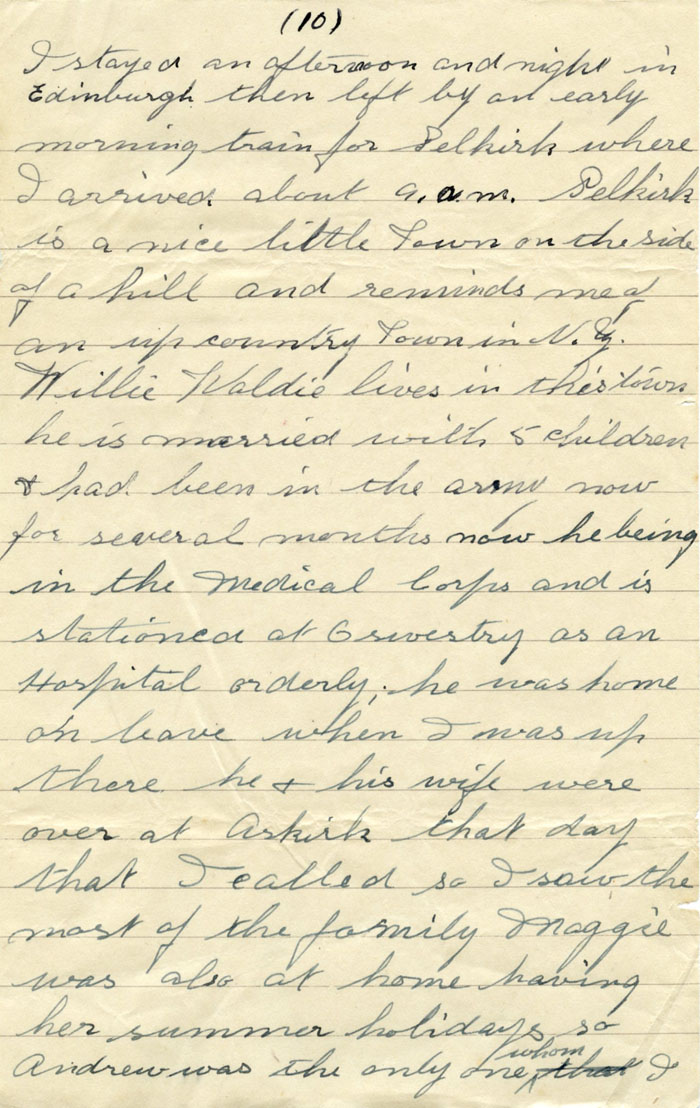 (10)
I stayed an afternoon and night in
Edinburgh then left by an early
morning train for Selkirk where
I arrived about 9. a.m. Selkirk
is a nice little Town on the side
of a hill and reminds me of
an up country Town in N. Z.
Willie Waldie lives in this town
he is married with 5 children
& had been in the army now
for several months now he being
in the Medical Corps and is
stationed at Oswestry as an
Hospital orderly; he was home
on leave when I was up
there he & his wife were
over at Askirk that day
that I called so I saw the
most of the family Maggie
was also at home having
her summer holidays so
Andrew was the only one whom that I